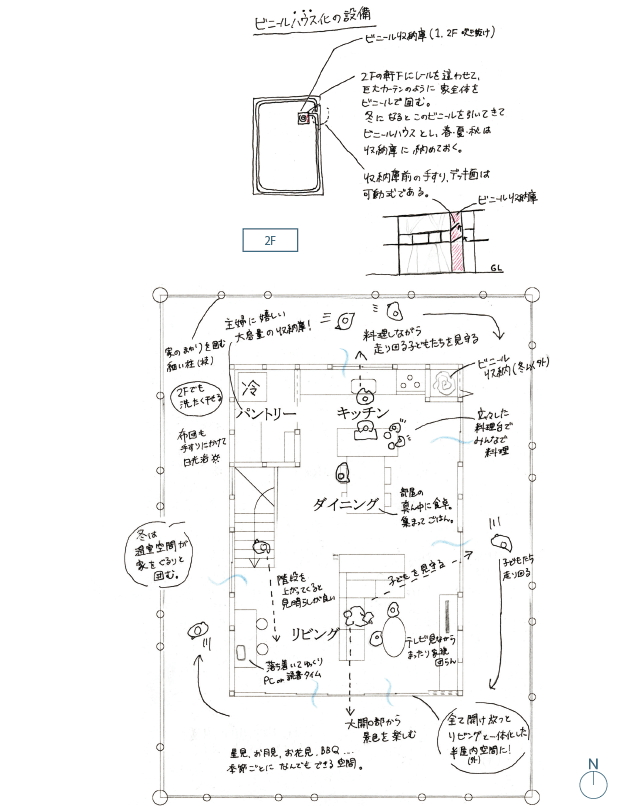 ビニールハウス化の設備
ビニール収納庫(1.2F 吹き抜け)
2Fの軒下にレールを這わせて、
巨大カーテンのように 家全体を
ビニールで囲む。
冬になると このビニールを引いてきて
ビニールハウスとし、春・夏・秋は
収納庫に納めておく。
収納庫前の手すり、デッキ面は
可動式である。
ビニール収納庫
GL
2F
主婦に嬉しい
大容量の収納庫!
家のまわりを囲む
細い柱
料理しながら
走り回る子どもたちを見守る
ビニール
収納(冬以外)
2Fでも
洗たく干せる
冷
パントリー
キッチン
布団も
手すりにかけて
日光浴
広々した
料理台で
みんなで
料理
ダイニング
部屋の
真ん中に食卓。
集まってごはん。
冬は
温室空間が
家をぐるりと
囲む。
階段を
上がってくると
見晴らしが良い
子どもを見守る
子どもたち
走り回る
リビング
テレビ見ながら
まったり家族
団らん
落ち着いてゆっくり
PC or 読書タイム
大開口部から
景色を楽しむ
全て開け放つと
リビングと一体化した
半屋内空間に!
(外)
星見、お月見、お花見、BBQ...
季節ごとに なんでもできる空間。
N